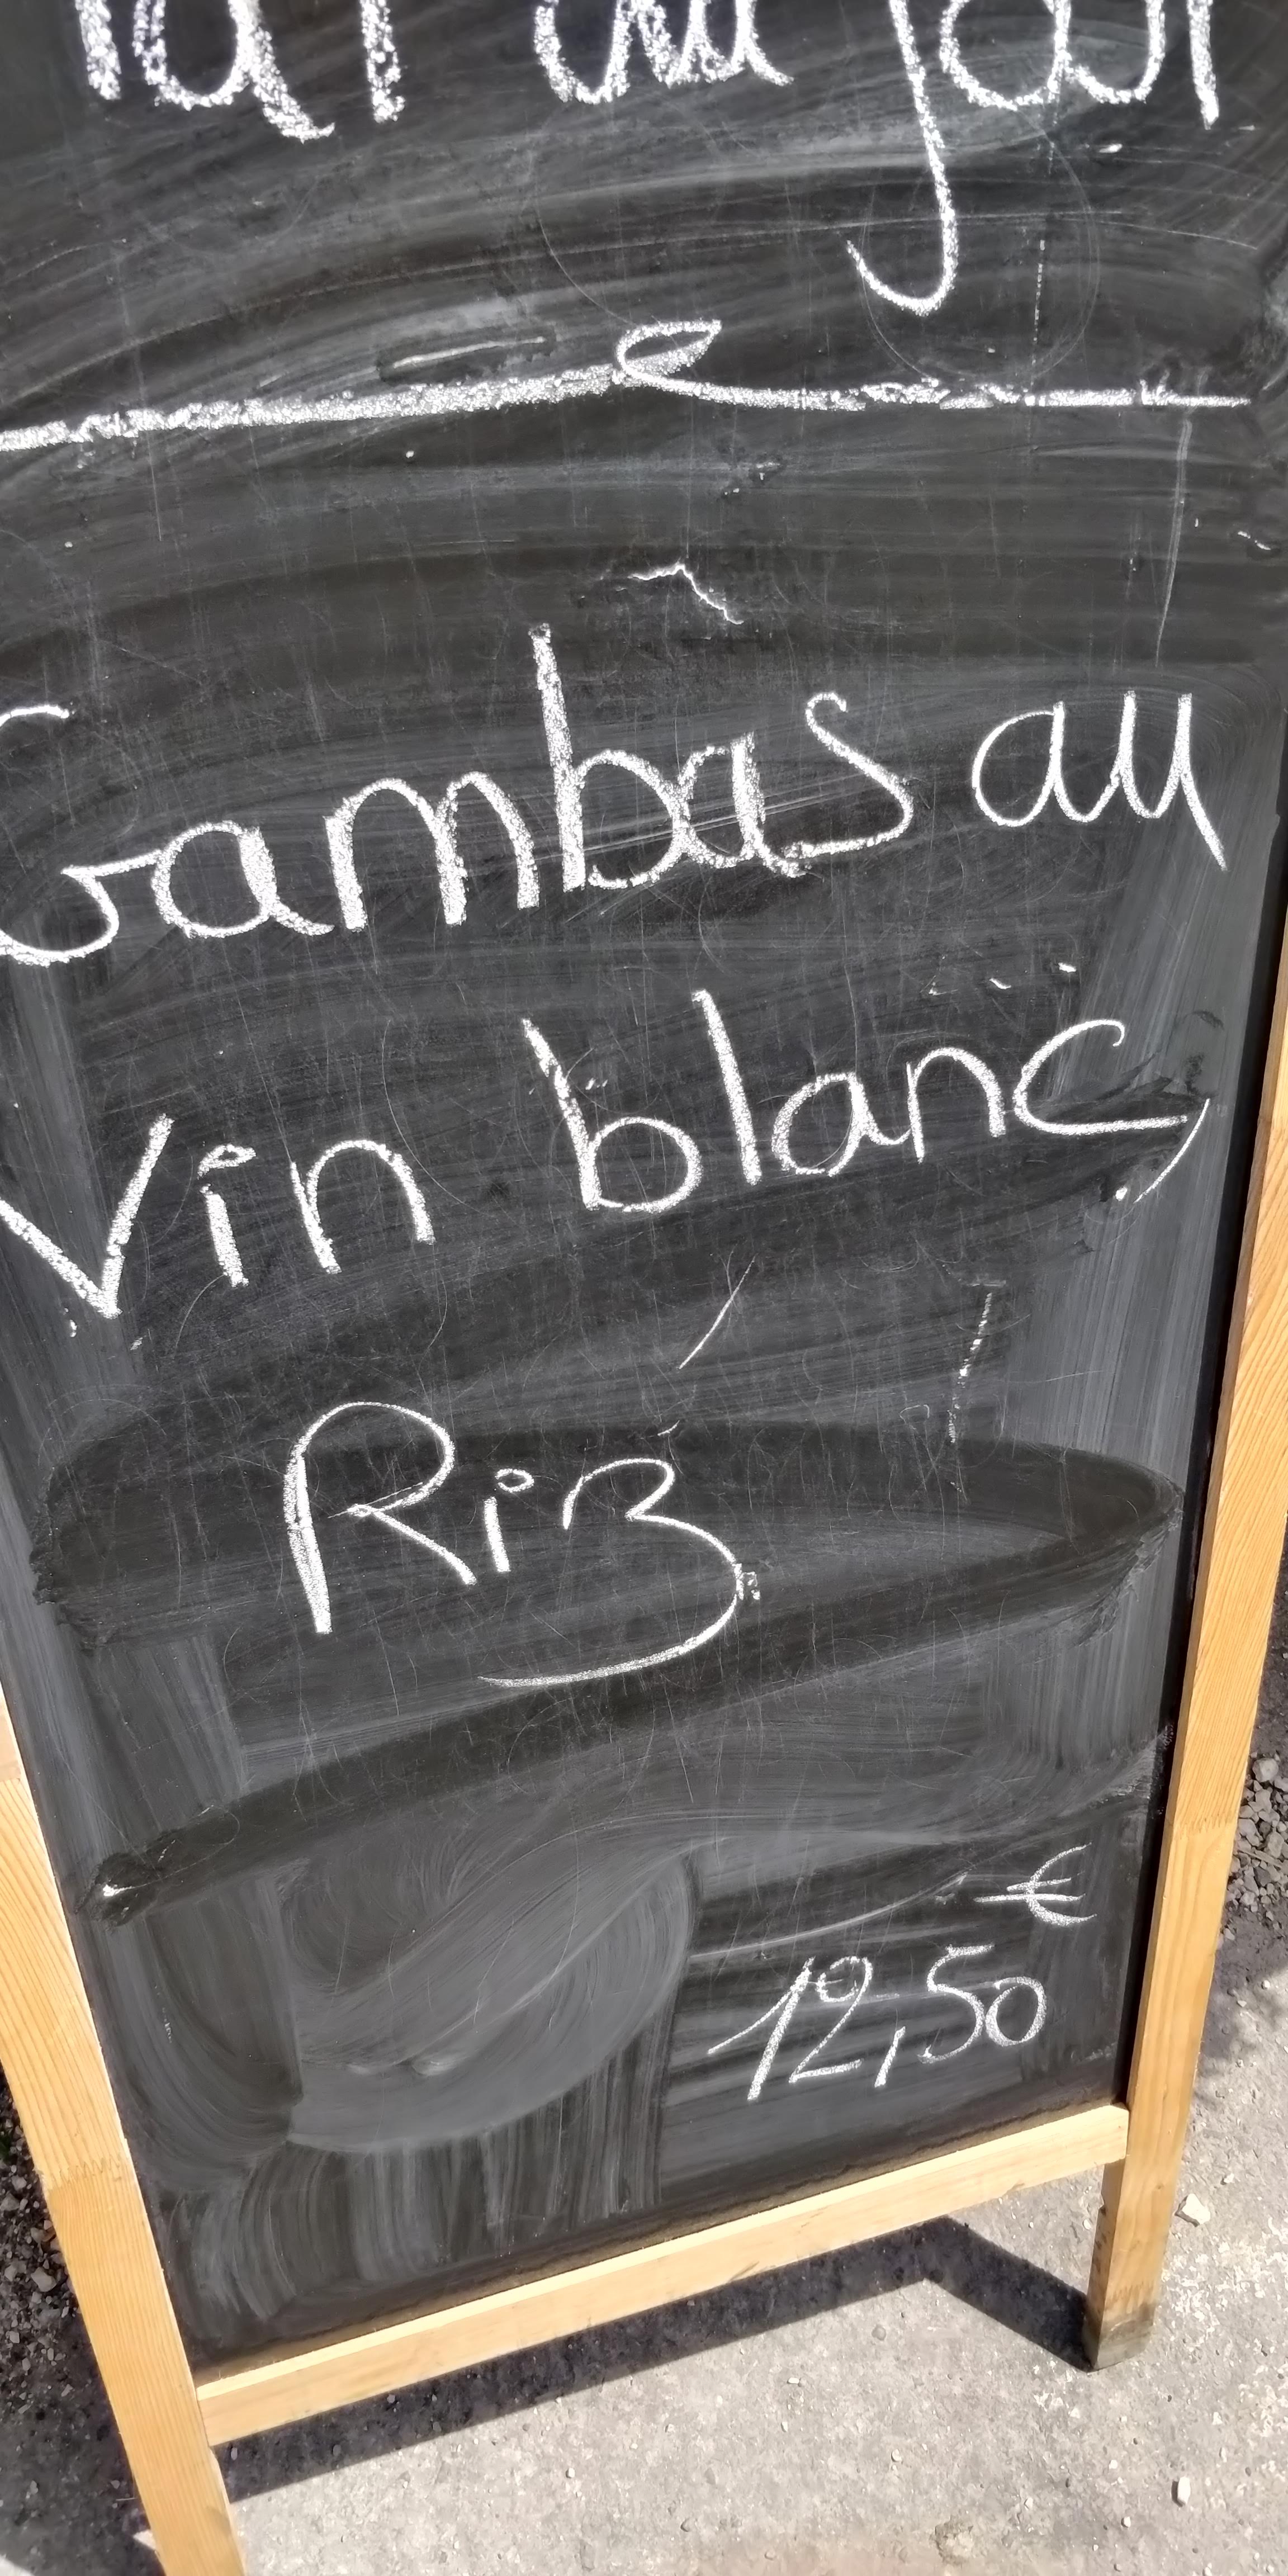 Plat du jour
Gambas au
Vin blanc,
Riz
€
12,50